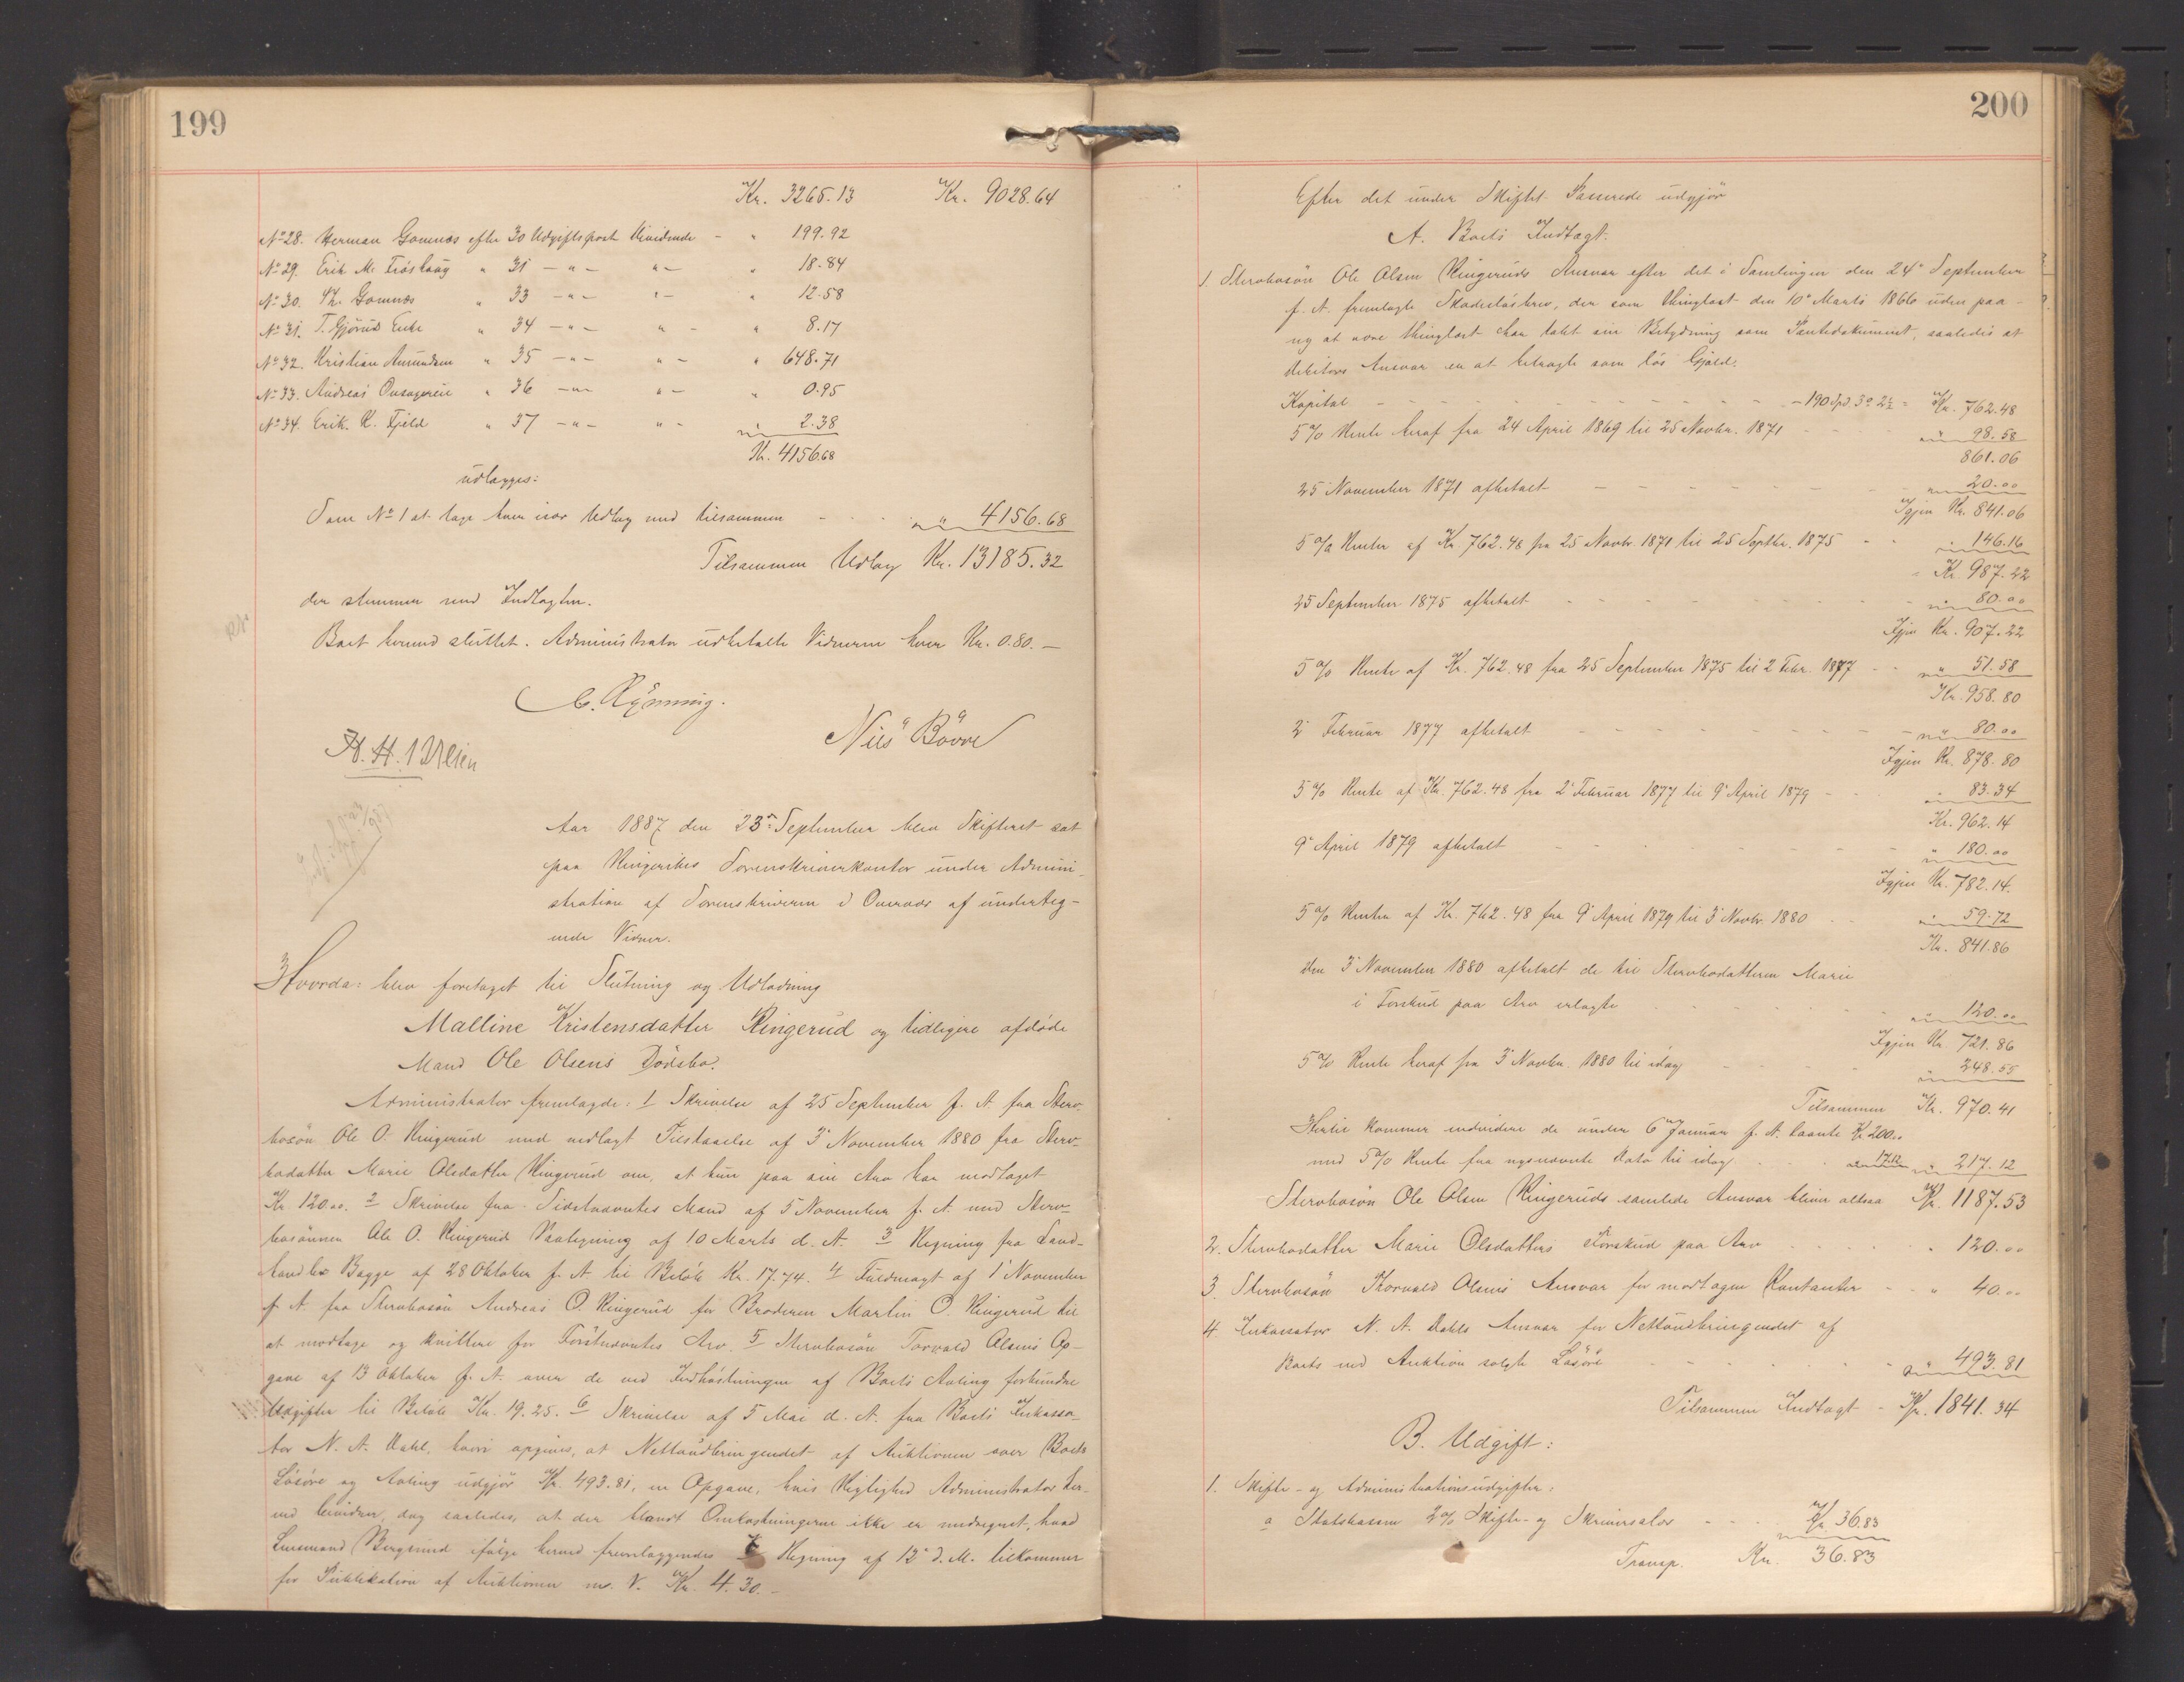 199
Kr. 3265.13 Kr. 9028.64
No 28. Herman Gomnæs efter 30 Udgiftspost Dividende - " 199.92
No 29. Erik M. Frøshaug " 31 - " - " - " 18.84
No 30. Th. Gomnæs " 33 - " - " - " 12.58
No 31. T. Gjørud Enke " 34 - " - " - " 8.17
No 32. Kristian Amundsen " 35 - " - " - " 648.71
No 33. Andreas " 36 - " - " - " 0.95
No 34. Erik K. Fjeld " 37 - " - " - " 2.38
Kr. 4156.68
udlægges:
Som No 1 at tage hver især Udlæg med tilsammen - - - " 4156.68
Tilsammen Udlæg Kr. 13185.32
der stemmer med Indtægten.
Boet hermed sluttet. Administrator udbetalte Vidnerne hver Kr. 0.80. -
C. Rynning.
Nils Børre
Aar 1887 den 23de September blev Skifteret sat
paa Ringerikes Sorenskriverkontor under Admini-
stration af Sorenskriveren i Overvær af underteg-
nede Vidner.
Hvorda: blev foretaget til Slutning og Udlodning
Malline Kristensdatter Ringerud og tidligere afdøde
Mand Ole Olsens Dødsbo.
Administrator fremlagde: 1 Skrivelse af 25 September f. A. fra Sterv-
bosøn Ole O. Ringerud med vedlagt Tilstaaelse af 3 November 1880 fra Sterv-
bodatter Marie Olsdatter Ringerud om, at hun paa sin Arv har modtaget
Kr. 120.00. 2 Skrivelse fra Sidstnævntes Mand af 5 November f. A. med Sterv-
bosønnen Ole O. Ringerud Paategning af 10 Marts d. A. 3 Regning fra Land-
handler Bagge af 28 Oktober f. A. til Beløb Kr. 17.74. 4 Fuldmagt af 1 November
f. A. fra Stervbosøn Andreas O. Ringerud for Broderen Martin O. Ringerud til
at modtage og kvittere for Førstnævntes Arv. 5 Stervbosøn Torvald Olsens Op-
gave af 13 Oktober f. A. over de ved Indhøstningen af Boets Avling forbundne
Udgifter til Beløb Kr. 19.25. 6 Skrivelse af 5 Mai d. A. fra Boets Inkassa-
tor N. A. Dahl, hvori opgives, at Nettoudbringendet af Auktionen over Boets
Løsøre og Avling udgjør Kr. 493.81, en Opgave, hvis Rigtighed Administrator her-
ved bevidner, dog saaledes, at der blandt Omkostningerne ikke er medregnet, hvad
Lensmand Bergsund ifølge herved fremlæggendes 7 Regning af 12 d. M. tilkommer
for Publikation af Auktionen m. V. Kr. 4.30. -
200
Efter det under Skiftet Passerede udgjør
A. Boets Indtægt.
1. Stervbosøn Ole Olsen Ringeruds Ansvar efter det i Samlingen den 24de September
f. A. fremlagte Skadesløsbrev, der som thinglæst den 10de Marts 1866 uden paa-
ny at være thinglæst har tabt sin Betydning som Pantedokument, saaledes at
Debitors Ansvar er at betragte som løs Gjæld.
Kapital - - - - - 190 Spd. 3 " 2 = Kr. 762.48
5 % Rente heraf fra 24 April 1869 til 25 Novbr. 1871 - - " 98.58
861.06
25 November 1871 afbetalt - - - - " 20.00
Igjen Kr. 841.06
5 % Renter af Kr. 762.48 fra 25 Novbr. 1871 til 25 Septbr. 1875 - - " 146.16
Kr. 987.22
25 September 1875 afbetalt - - - - " 80.00
Igjen Kr. 907.22
5 % Rente af Kr. 762.48 fra 25 September 1875 til 2 Febr. 1877 - - " 51.58
Kr. 958.80
2 Februar 1877 afbetalt - - - - " 80.00
Igjen Kr. 878.80
5 % Rente af Kr. 762.48 fra 2 Februar 1877 til 9 April 1879 - - " 83.34
Kr. 962.14
9 April 1879 afbetalt - - - - " 180.00
Igjen Kr. 782.14.
5 % Renter af Kr. 762.48 fra 9 April 1879 til 3 Novbr. 1880 - - " 59.72
Kr. 841.86
Den 3 November 1880 afbetalt de til Stervbodatteren Marie
i Forskud paa Arv erlagte - - - - " 120.00
Igjen Kr. 721.86
5 % Rente heraf fra 3 Novbr. 1880 til idag - - - " 248.55
Tilsammen Kr. 970.41
Hertil kommer endvidere de under 6 Januar f. A. laante Kr. 200.00
med 5 % Rente fra nysnævnte Dato til idag - - 17.12 " 217.12
Stervbosøn Ole Olsen Ringeruds samlede Ansvar bliver altsaa Kr. 1187.53
2. Stervbodatter Marie Olsdatters Forskud paa Arv - - - " 120.00
3. Stervbosøn Thorvald Olsens Ansvar for modtagne Kontanter - - " 40.00
4. Inkassator N. A. Dahls Ansvar for Nettoudbringendet af
Boets ved Auktion solgte Løsøre - - - - " 493.81
Tilsammen Indtægt - Kr. 1841.34
B. Udgift:
1. Skifte- og Administrationsudgifter:
a Statskassen 2 % Skifte- og Skriversalær - - - Kr. 36.83
Transp. Kr. 36.83